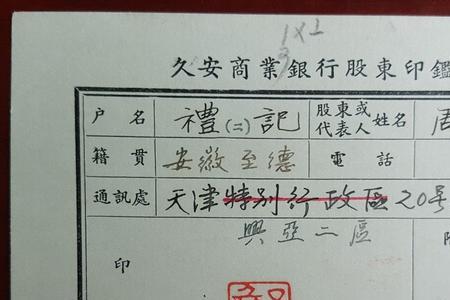 久安商業銀行股東印鑑
户名 禮(二)記 股東或代表人姓名 周
籍貫 安徽至德 電話
通訊處 天津特別行政區20号
興亞二區
印